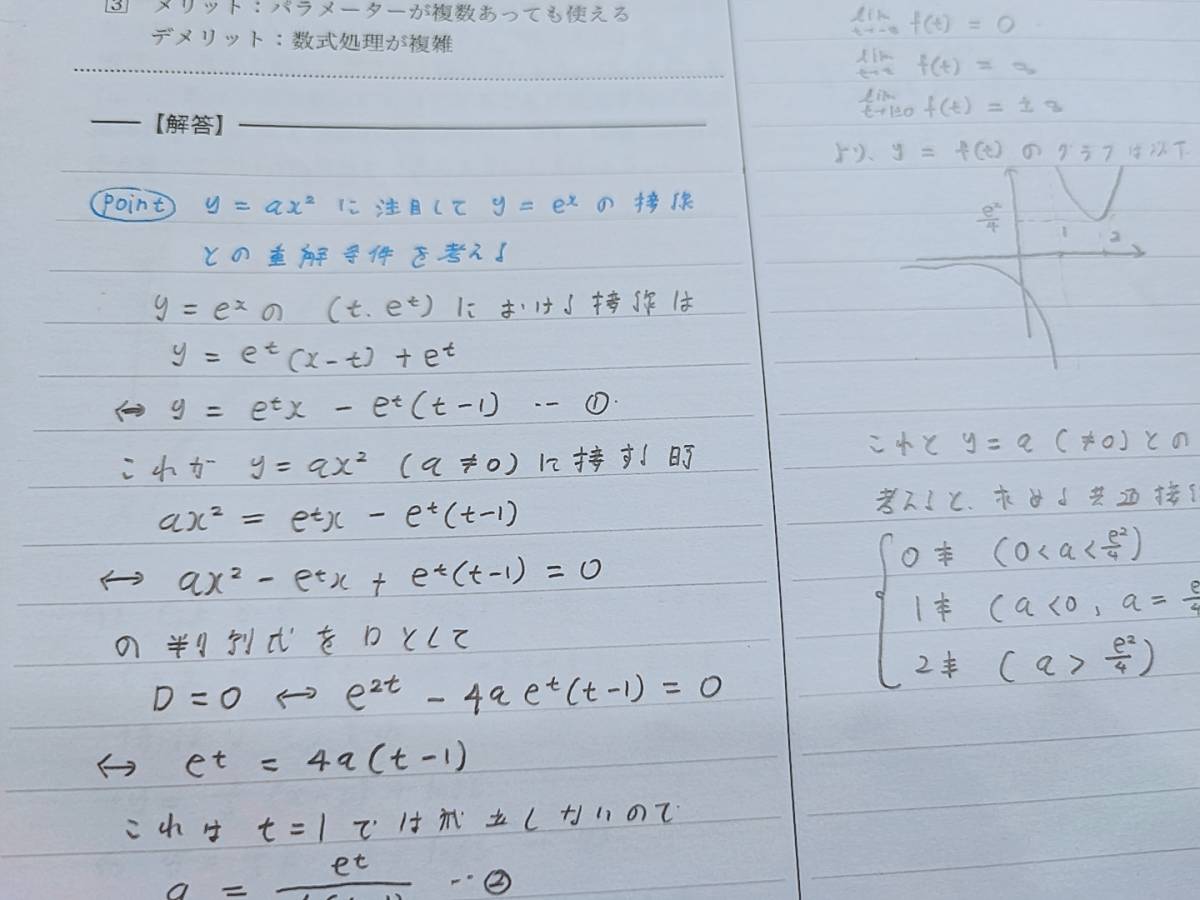 3 メリット：パラメーターが複数あっても使える
デメリット：数式処理が複雑
【解答】
point y = ax² に注目して y = eˣ の接線
との重解条件を考える
y = eˣ の (t. eᵗ) における接線は
y = eᵗ(x-t) + eᵗ
⇔ y = eᵗx - eᵗ(t-1) … ①.
これが y = ax² (a ≠ 0) に接する時
ax² = eᵗx - eᵗ(t-1)
⇔ ax² - eᵗx + eᵗ(t-1) = 0
の判別式を D として
D = 0 ⇔ e²ᵗ - 4aeᵗ(t-1) = 0
⇔ eᵗ = 4a(t-1)
これは t = 1 では成立しないので
a = eᵗ/ … ②
f(t) = 0
lim f(t) = ∞
lim t→1±0 f(t) = ±∞
より、y = f(t) のグラフは以下
e²/4
1 2
これと y = a (≠0) との
考えると、求める共通接
0本 (0 < a < e²/4)
1本 (a < 0, a =
2本 (a > e²/4)